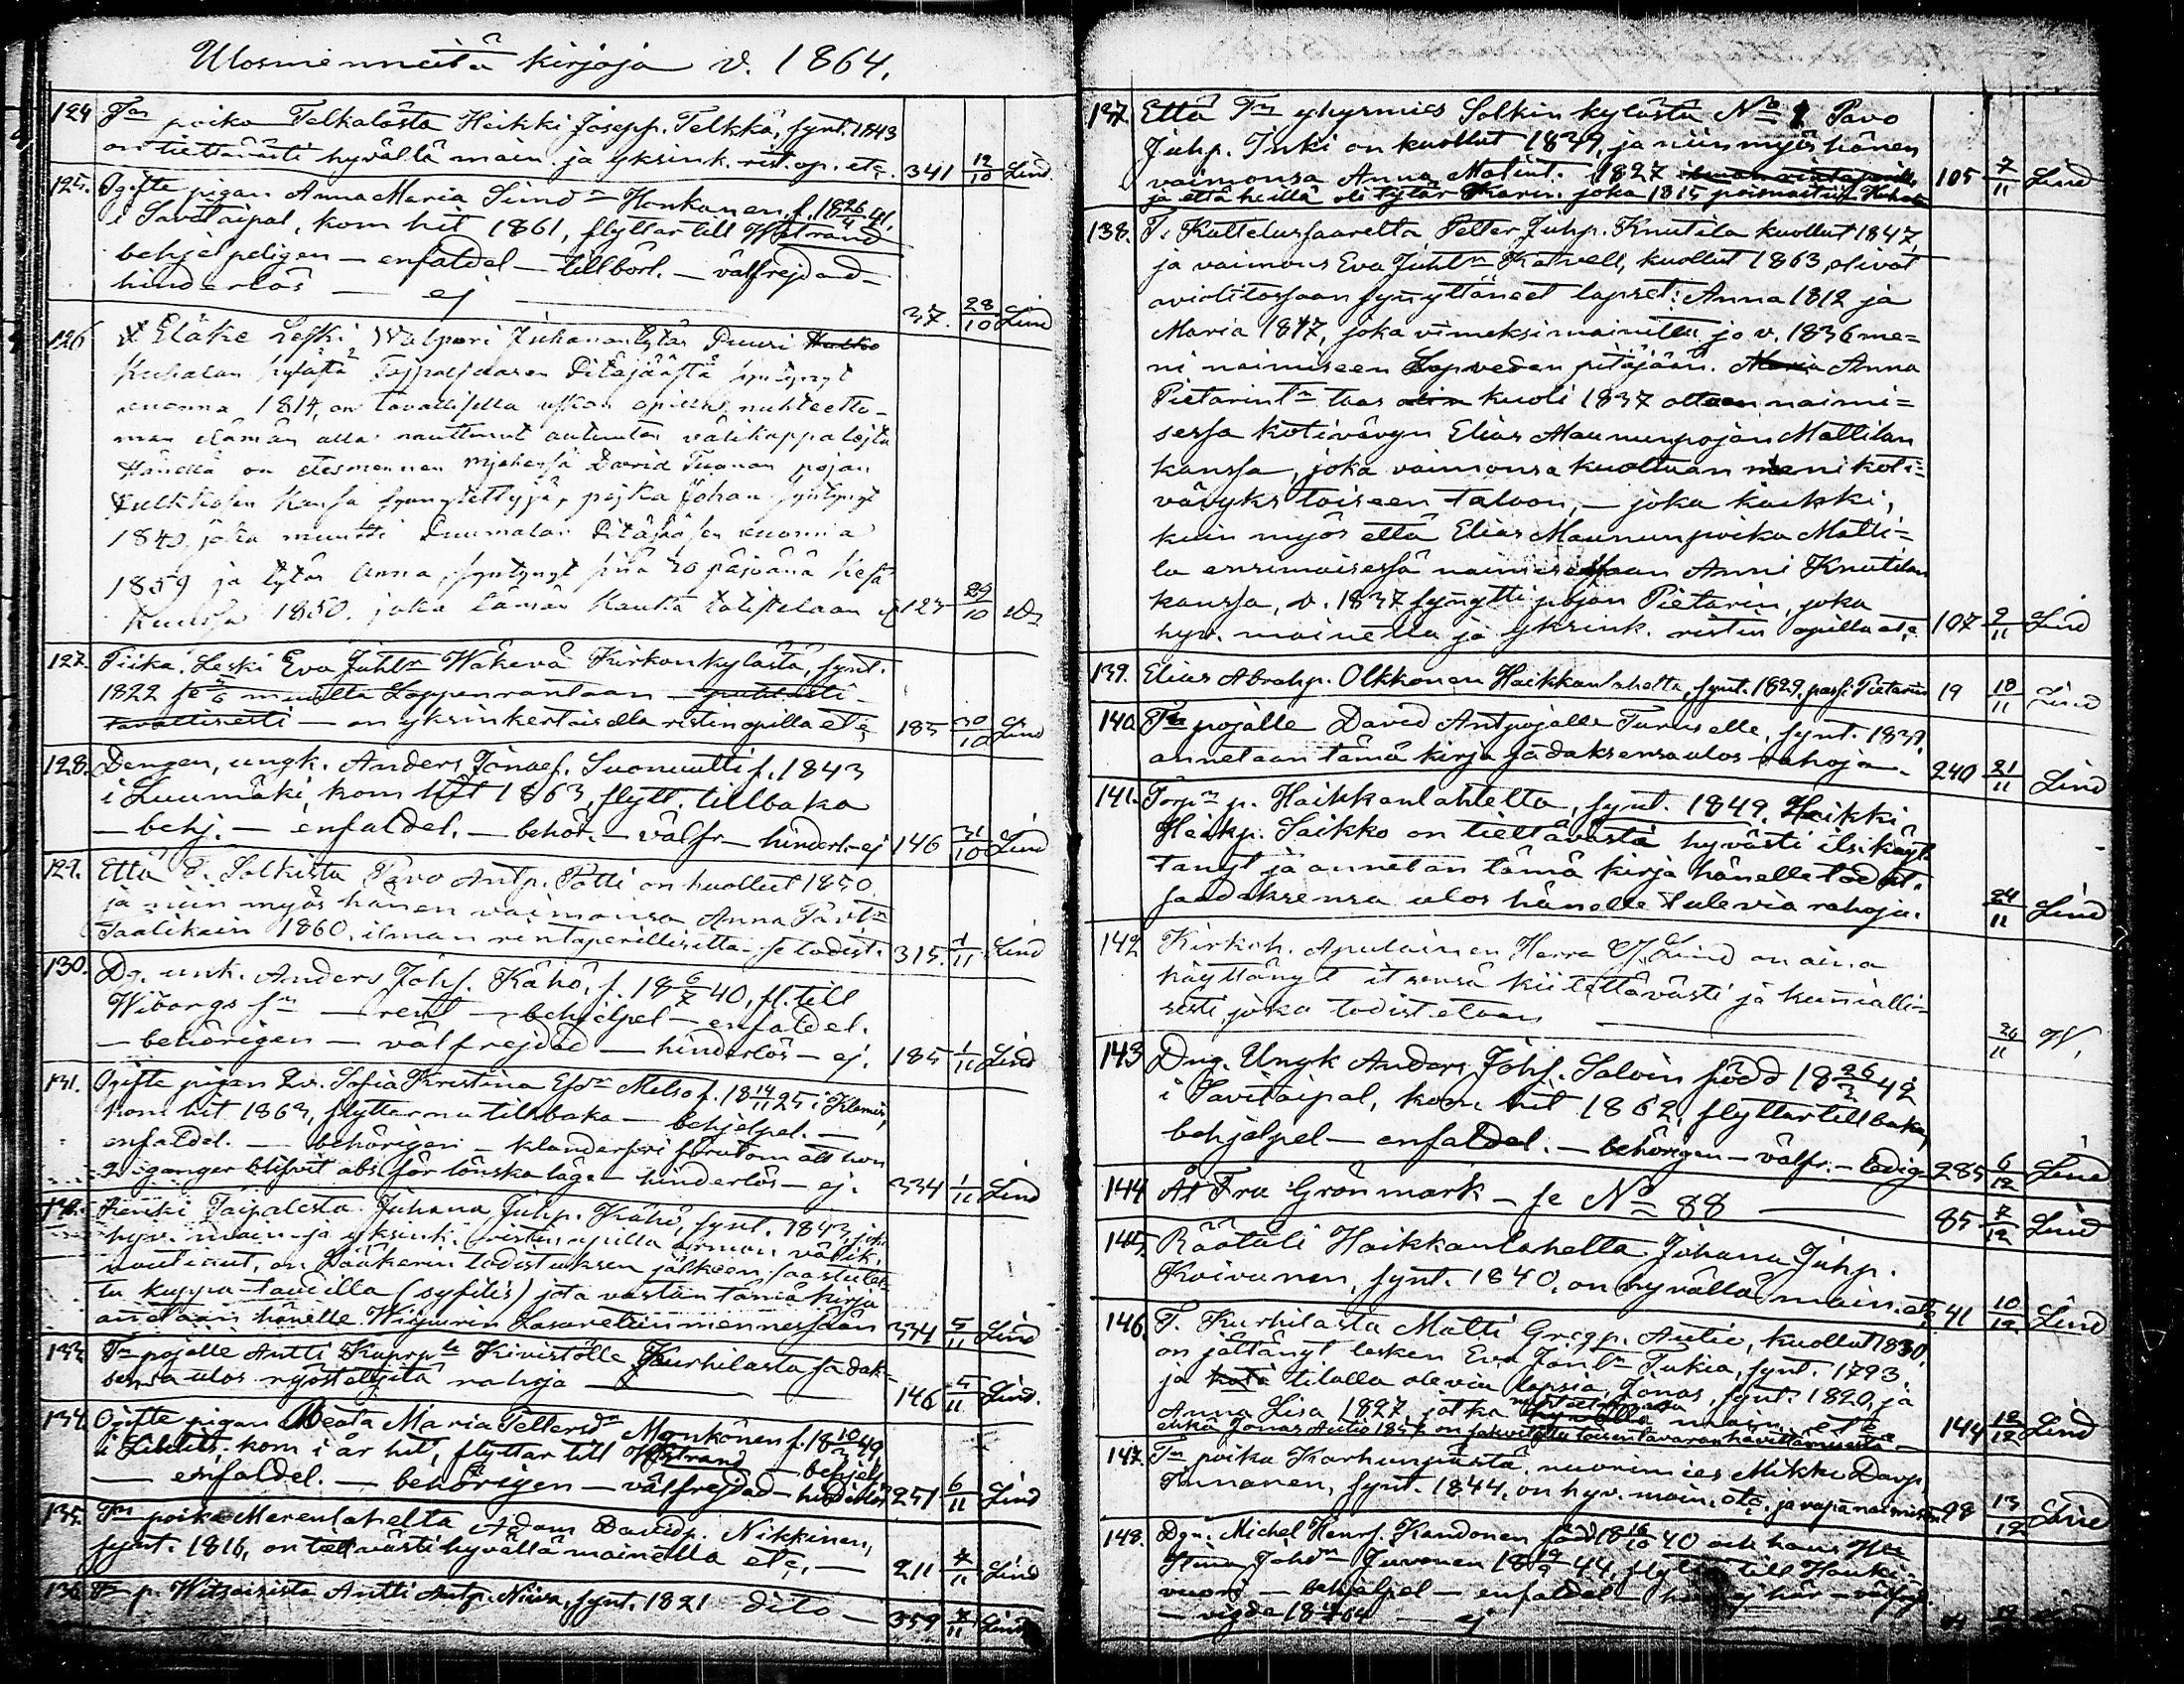 Ulosmenneitä kirjoja v. 1864.
124 Tan poika Telkälästä Heikki Josepp. Telkkä, synt. 1843
on tiettävästi hyvällä main. ja yksink. rist. op. etc. 341 12/10 Lind.
125. Ogifte pigan Anna Maria Simdr Honkanen, f. 18 26/4 41.
i Savitaipal, kom hit 1861, flyttar till W:strand
behjelpeligen — enfaldel — tillbörl. — välfrejdad —
hinderlös — ej 37. 28/10 Lind
126 Eläke Leski Walpori Juhanantytär Puuri
Kuhalan kylästä Taipalsaaren Pitäjäästä syntynyt
vuonna 1814, on tavallisella uskon opilla, nuhteetto-
man elämän alla nauttinut autuuten välikappaleita
Hänellä on edesmennen miehensä David Tuomon pojan
Kulkkosen kansa synnytettyjä, poika Johan syntynyt
1840, joka muutti Puumalan Pitäjääsen vuonna
1859 ja tytär Anna, syntynyt sinä 20 päivänä Kesä
Kuussa 1850. joka tämän kautta todistetaan 123 29/10
127. Piika Leski Eva Juhtr Wäkevä Kirkonkylästä, synt.
1822 muutta Lappenrantaan —
tavallisesti — on yksinkertaisella ristin opilla etc 185 30/10 Lind
128. Dengen, ungk. Anders Jönsef. Suomutti f. 1843
i Luumäki, kom hit 1863, flytt. tillbaka
— behj. — enfaldel. — behör. — välfr — hinderl. ej 146 31/10 Lind
129. Että T. Solkista Pavo Antp. Potti on kuollut 1850.
ja niin myös hänen vaimonsa Anna Pavtr
Taalikain 1860. ilman rintaperillisittä. se todist. 315. 1/11 Lind
130. Dg. unk. Anders Johs. Kähö, f. 18 6/7 40, fl. till
Wiborgs — rent — behjelpel — enfaldel.
— behörigen — välfrejdad — hinderlös — ej. 185 1/11 Lind
131. Ogifte pigan Sofia Kristina Esdr Melso f. 18 14/11 25 i Klemis,
kom hit 1863, flyttar nu tillbaka — behjelpel. —
enfaldel. — behörigen — klanderfri förutom att hon
2 gånger blifvit abs. för lönskaläge — hinderlös — ej. 334 1/11 Lind
132. Renki Taipalesta Juhana Juhp. Kähö, synt. 1843, joka
hyv. main. ja yksink. ristin opilla armon välik.
nautinut, on Lääkerin todistuksen jälkeen saastutet-
tu kuppa-taudilla (syfilis) jota vastan tämä kirja
anetaan hänelle Wiipurin Lasarettiin mennessään 334 5/11 Lind
133 Tn pojalle Antti Kaprple Kivistölle Kurhilasta sadak-
sensa ulos ryöstetyitä rahoja — 146 5/11 Lind.
134. Ogifte pigan Beata Maria Pettersdr Monkönen f. 18 10/3 49
i Libelits. kom i år hit, flyttar till W:strand — behjelp
— enfaldel. — behörigen — välfrejdad — hinderlös 251 6/11 Lind
135. Tn poika Merenlahelta Adam Davidp. Nikkinen,
synt. 1816, on tiettävästi hyvällä mainella etc. — 211 7/11 Lind
136. Tn p. Witsaisista Antti Antp. Niiva, synt. 1821 dito — 359 7/11 Lind
137. Että Tn yhyrmies Solkin kylästä No 1 Pavo
Juhp. Inki on kuollut 1849, ja niin myös hänen
vaimonsa Anna Matint. 1827
ja että heillä oli tytär Karin. joka 1815 poismuttui 105 7/11 Lind
138. T. Kattelussaaretta Petter Juhp. Knutila kuollut 1847,
ja vaimons Eva Juhtr Karvell, kuollut 1863, olivat
aviolitossaan synnyttäneet lapset: Anna 1812 ja
Maria 1817, joka vimeksi mainittu jo v. 1836 me=
ni naimiseen Lapveden pitäjään. Anna
Pietarintr taas kuoli 1837 naimi=
sessa kotivävyn Elias Maununpojan Mattilan
kanssa, joka vaimonsa kuoltuan meni koti=
vävyks toiseen taloon, — joka kaikki,
kuin myös että Elias Maununpoika Matti=
la ensimäisessä naimisessaan Anni Knutilan
kanssa, v. 1837 synnytti pojan Pietarin, joka
hyv. mainella ja yksink. ristin opilla etc 107 9/11 Lind
139. Elias Abrahp. Olkkonen Haikkanlahelta, synt. 1829, passi Pietariin 19 18/11 Lind
140. Tn pojalle David Antpojalle Turuselle, synt. 1839,
annetaan tämä kirja sadaksensa ulos rahoja — 240 21/11 Lind
141. Torpn p. Haikkanlahtelta, synt. 1849. Heikki
Heikp. Saikko on tiettävästi hyvästi itsikäyt-
tänyt ja annetan tämä kirja hänelle todist.
saadaksensa ulos hänelle tulevia rahoja. 24/11 Lind
142 Kirkoh. Apulainen Herra Lind on aina
käyttänyt itsensä kiitettävästi ja kunialli=
sesti, joka todistetaan 26/11 W.
143 Dng. Ungk Anders Johs. Solvin född 18 26/2 42
i Savitaipal, kom hit 1862, flyttar tillbaka,
behjelpel — enfaldel. — behörigen — välfr. — ledig — 285 6/12 Lind
144 Åt Fru Grönmark — se No 88 — 85 7/12 Lind
145. Räätäli Haikkanlahelta Johana Juhp.
Koivunen, synt. 1840, on hyvällä main. etc 41 10/12 Lind
146. T. Kurhilasta Matti Gregp. Autio, kuollut 1830,
on jättänyt lesken Eva Jontr Tukia, synt. 1793.
ja tilalla olevia lapsia, Jonas, synt. 1820, ja
Anna Lisa 1827 jotka main. etc
ehkä Jonas Autio 1857 on sakoitettu toisen tavaran hävittämisestä — 144 12/12 Lind
147. Tn poika Karhunpäästä, nuorimies Mikko Davp.
Tinnanen, synt. 1844, on hyv. main. etc. ja vapa naimisen 98 13/12 Lind
148. Dgn. Michel Henrs. Kandonen född 18 16/10 40 och hans
Stina Johdr Juvonen 18 19/9 44, flytta till Hauki-
vuori — behjelpel — enfaldel — här — välfrejd
— vigde 64 — ej